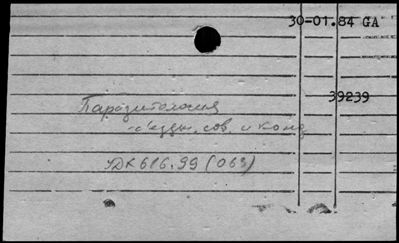 30-01.84 GA
39239
Паразитология
- съезды, сов. и конф.
УДК 616.99 (063)